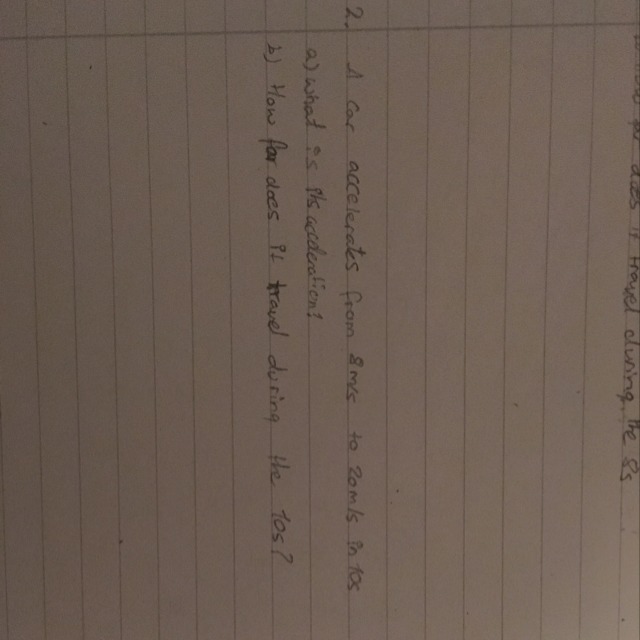 does it travel during the 8s
2. A car accelerates from 8ms to 20m/s in 10s
a) what is its acceleration?
b) How far does it travel during the 10s?